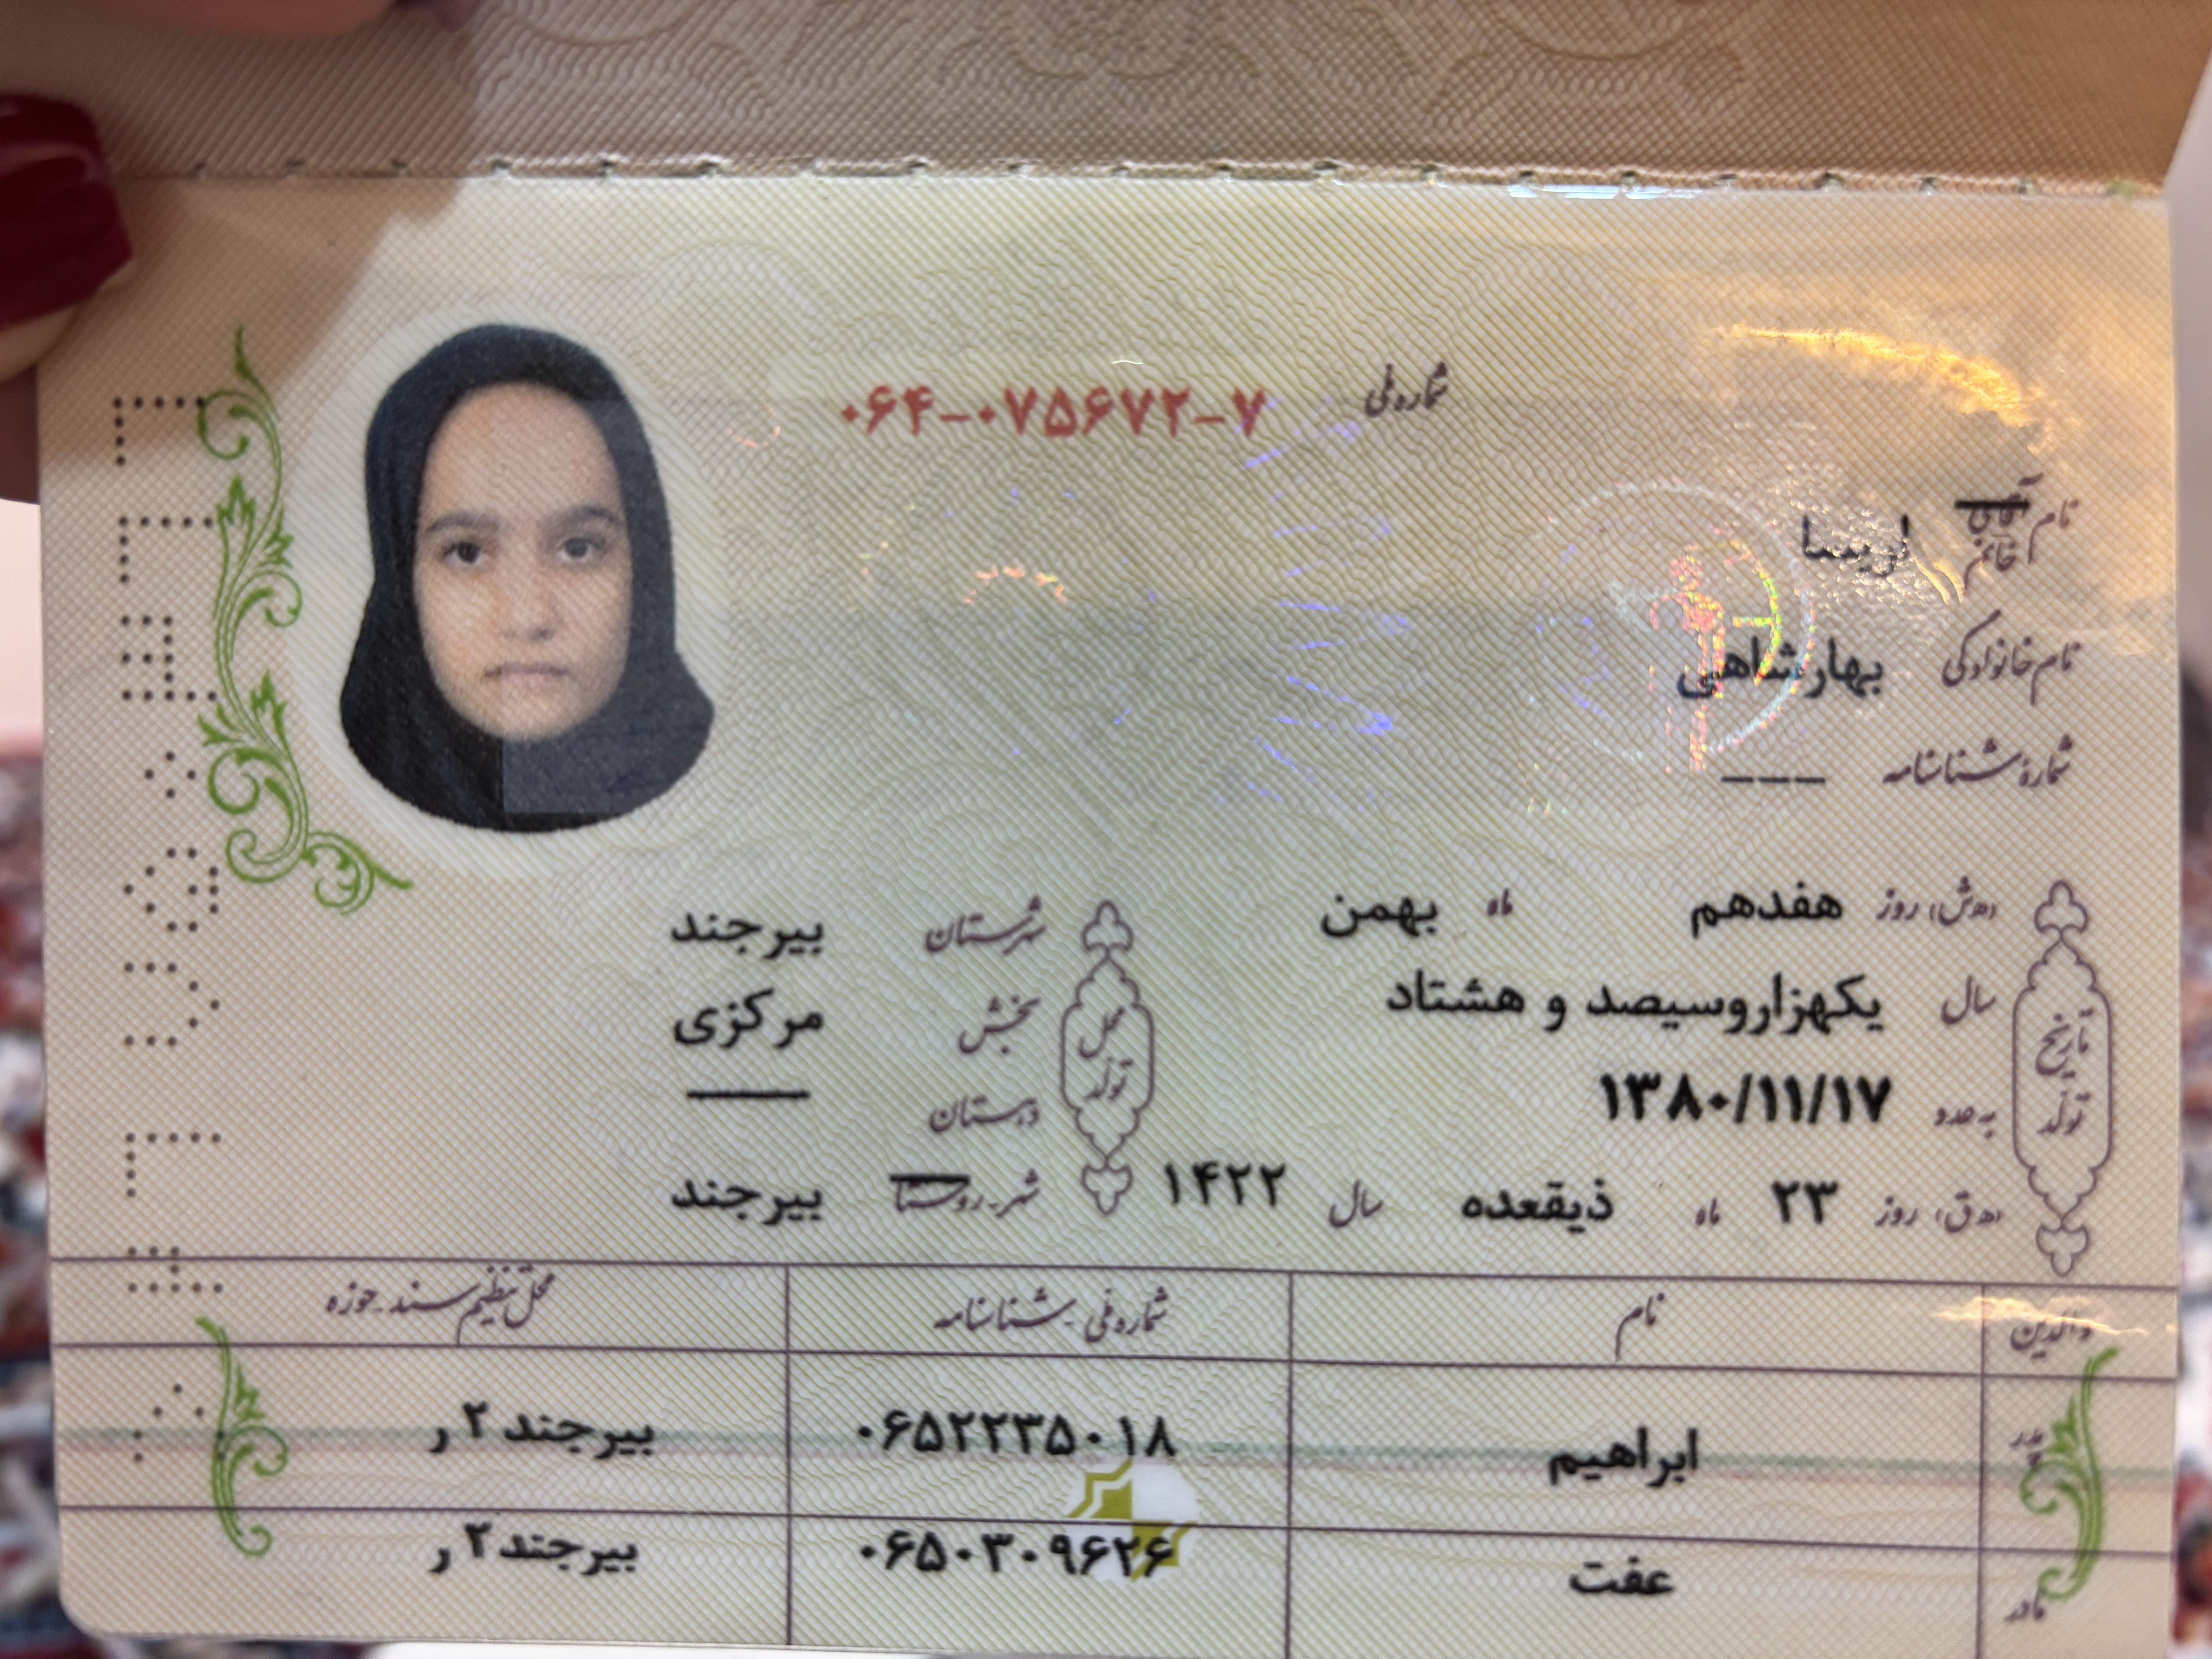 شماره ملی ۰۶۴-۰۷۵۶۷۲-۷
نام آقای خانم
نام خانوادگی بهارشاهی
شماره شناسنامه ---
تاریخ تولد
(ه‍.ش) روز هفدهم ماه بهمن
سال یکهزاروسیصد و هشتاد
به عدد ۱۳۸۰/۱۱/۱۷
(ه‍.ق) روز ۲۳ ماه ذیقعده سال ۱۴۲۲
محل تولد
شهرستان بیرجند
بخش مرکزی
دهستان ——
شهر-روستا بیرجند
والدین نام شماره ملی-شناسنامه محل تنظیم سند-حوزه
پدر ابراهیم ۰۶۵۲۲۳۵۰۱۸ بیرجند ۲ ر
مادر عفت ۰۶۵۰۳۰۹۶۲۶ بیرجند ۲ ر